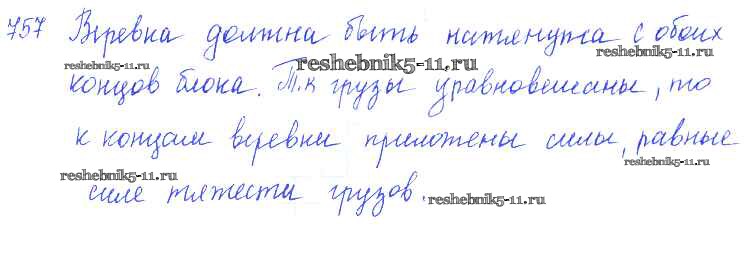 757 Веревка должна быть натянута с обоих
reshebnik5-11.ru reshebnik5-11.ru reshebnik5-11.ru
концов блока. Т.к грузы уравновешаны, то
к концам веревки приложены силы, равные
reshebnik5-11.ru reshebnik5-11.ru
силе тяжести грузов.
reshebnik5-11.ru